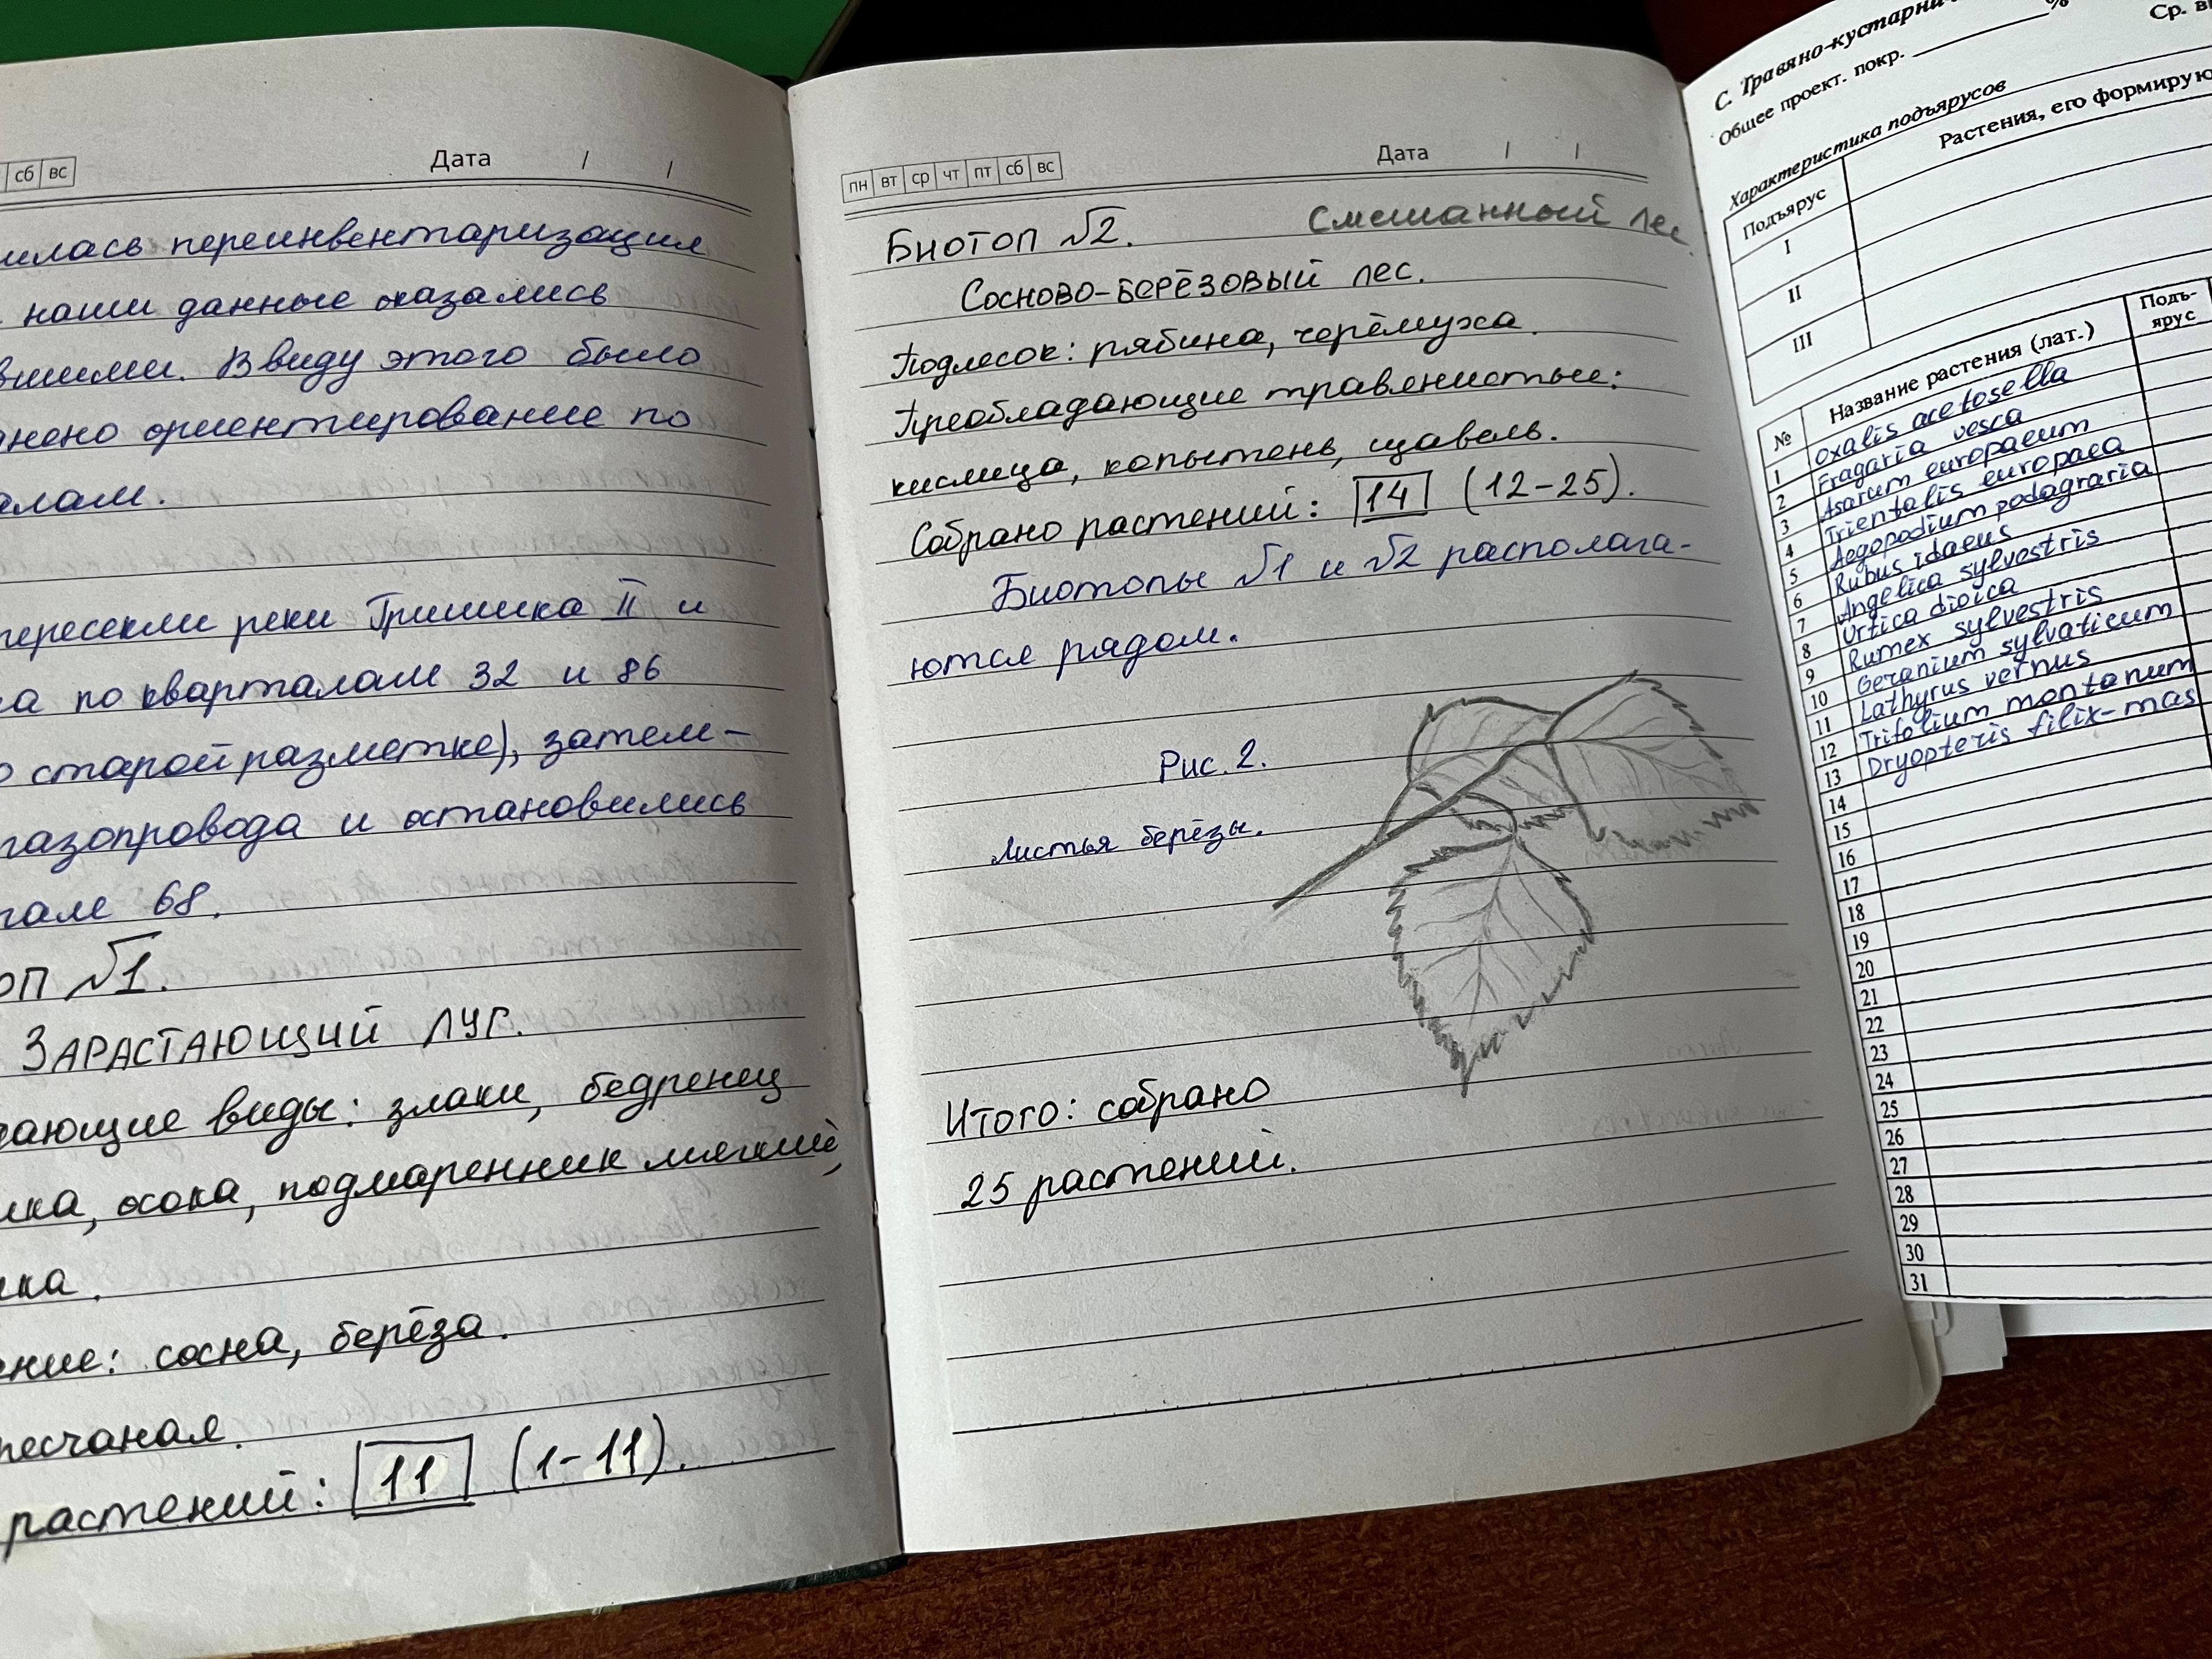 сб вс
Дата / /
переинвентаризация
наши данные оказались
Ввиду этого было
ориентирование по
пересекли реки Гришика II и
по кварталам 32 и 86
старой разметке), затем –
газопровода и остановились
68.
№1.
ЗАРАСТАЮЩИЙ ЛУГ.
виды: злаки, бедренец
осока, подмаренник мягкий,
сосна, берёза.
песчаная.
растений: 11 (1-11).
пн вт ср чт пт сб вс
Дата / /
Биотоп №2. Смешанный лес
Сосново-берёзовый лес.
Подлесок: рябина, черёмуха.
Преобладающие травянистые:
кислица, копытень, щавель.
Собрано растений: 14 (12-25).
Биотопы №1 и №2 располага-
ются рядом.
Рис. 2.
Листья берёзы.
Итого: собрано
25 растений.
С. Травяно-кустарни
Общее проект. покр. % Ср. в
Характеристика подъярусов
Подъярус Растения, его формирую
I
II
III
№ Название растения (лат.) Подъ-
ярус
1 Oxalis acetosella
2 Fragaria vesca
3 Asarum europaeum
4 Trientalis europaea
5 Aegopodium podagraria
6 Rubus idaeus
7 Angelica sylvestris
8 Urtica dioica
9 Rumex sylvestris
10 Geranium sylvaticum
11 Lathyrus vernus
12 Trifolium montanum
13 Dryopteris filix-mas
14
15
16
17
18
19
20
21
22
23
24
25
26
27
28
29
30
31